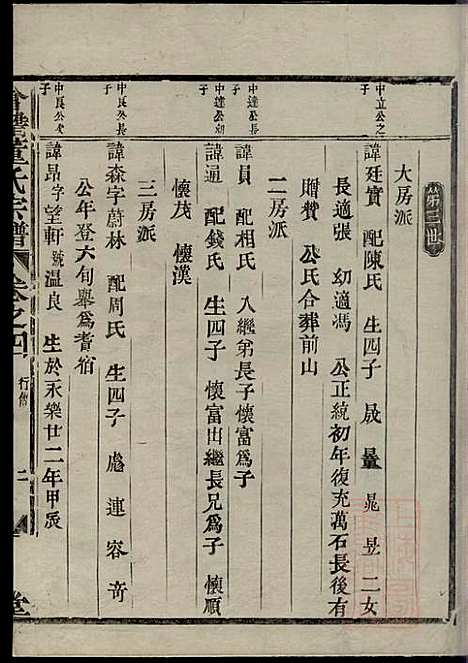 第三世
大房派
中立公之子
諱廷實 配陳氏 生四子 晟 量 晁 昱 二女
長適張 幼適馮 公正統初年復充萬石長後有
贈贊 公氏合葬前山
二房派
中達公長子
諱員 配相氏 入繼弟長子懷富為子
中達公幼子
諱通 配錢氏 生四子 懷富出繼長兄為子 懷順
懷茂 懷漢
三房派
中良公長子
諱森字蔚林 配周氏 生四子 彪 連 容 奇
公年登六旬舉為耆宿
中良公次子
諱昂字望軒號温良 生於永樂廿二年甲辰
董氏宗譜 卷之四 行傳 二 堂